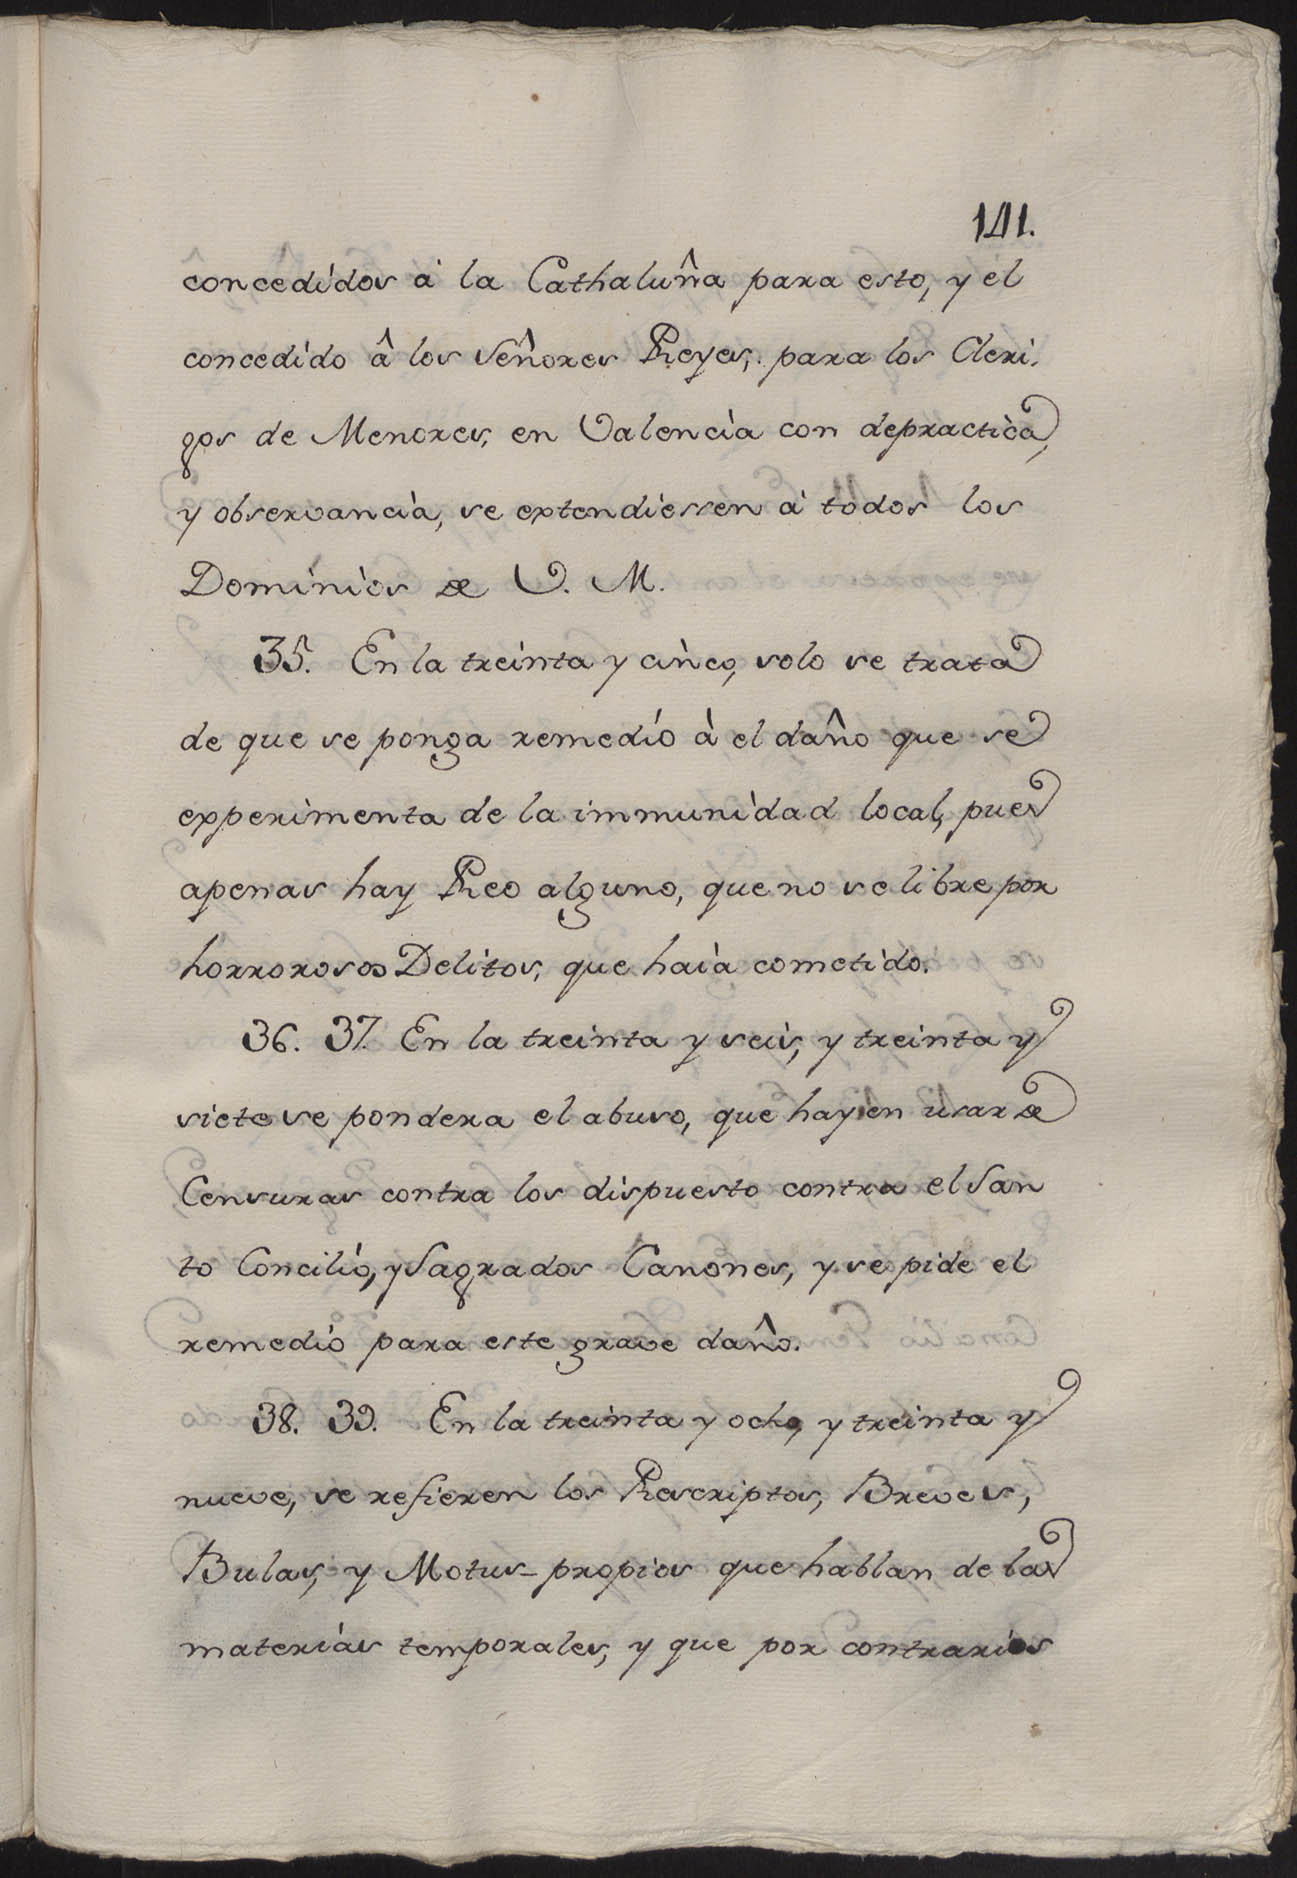 141.
concedidos á la Cathaluña para esto, y el
concedido â los Señores Reyes, para los Cleri-
gos de Menores, en Valencia con depractica,
y observancia, se extendiessen á todos los
Dominios de V. M.
35. En la treinta y cinco, solo se trata
de que se ponga remedio à el daño que se
experimenta de la immunidad local, pues
apenas hay Reo alguno, que no se libre por
horrorosos Delitos, que haia cometido.
36. 37. En la treinta y seis, y treinta y
siete se pondera el abuso, que hay en usar de
Censuras contra los dispuesto contra el San
to Concilio, y Sagrados Canones, y se pide el
remedio para este grave daño.
38. 39. En la treinta y ocho, y treinta y
nueve, se refieren los Rescriptos, Breves,
Bulas, y Motus-propios que hablan de las
materias temporales, y que por contrarios